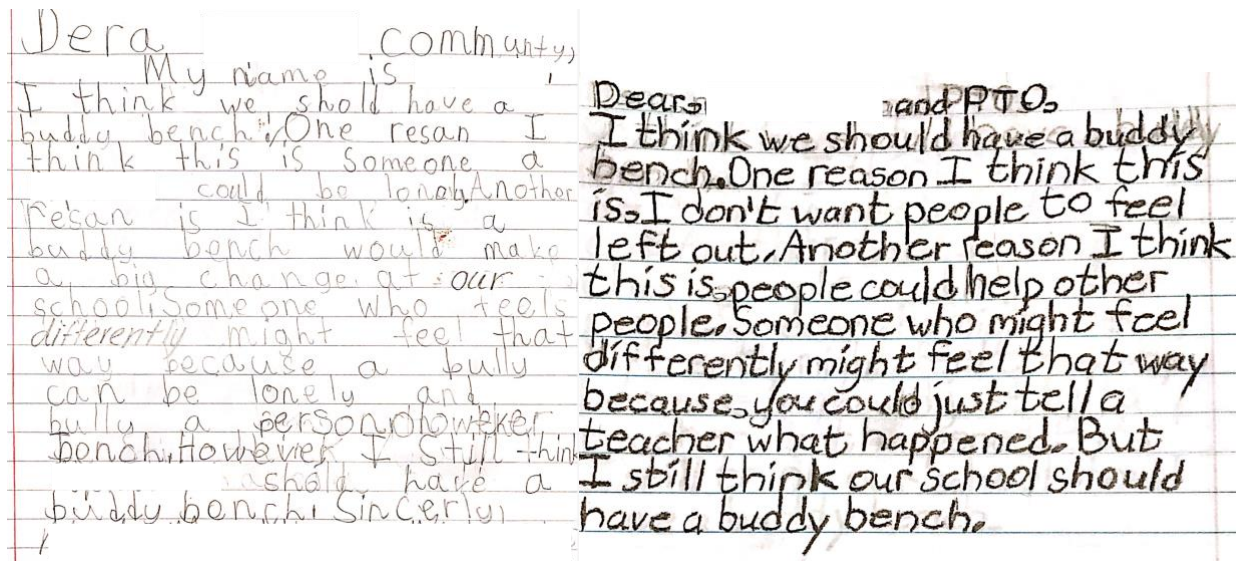 Dera communty,
My name is
I think we shold have a
buddy bench. One resan I
think this is Someone a
could be lonely. Another
resan is I think is a
buddy bench would make
a big change at our
school. Someone who feels
differently might feel that
way because a bully
can be lonely and
bully a person
bench. However I Still think
shold have a
buddy bench. Sincerly,
Dear, and PTO,
I think we should have a buddy
bench. One reason I think this
is, I don't want people to feel
left out. Another reason I think
this is, people could help other
people. Someone who might feel
differently might feel that way
because, you could just tell a
teacher what happened. But
I still think our school should
have a buddy bench.